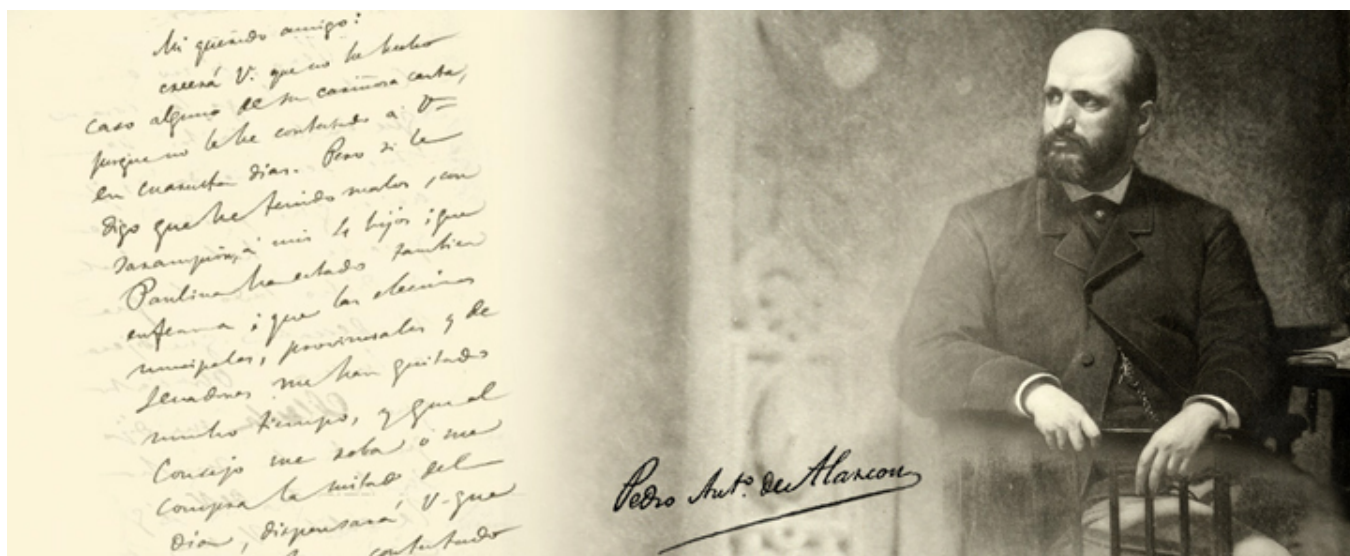 Mi querido amigo:
creerá V. que no he hecho
caso alguno de su cariñosa carta,
porque no le he contestado á V=
en cuarenta dias. Pero si le
digo que he tenido malos, con
sarampión, á mis 4 hijos; que
Paulina ha estado tambien
enferma; que las elecciones
municipales, provinciales y de
Senadores me han quitado
mucho tiempo, y que el
Consejo me roba ó me
compra la mitad del
dia, dispensará V. que
contestado
Pedro Antº. de Alarcon